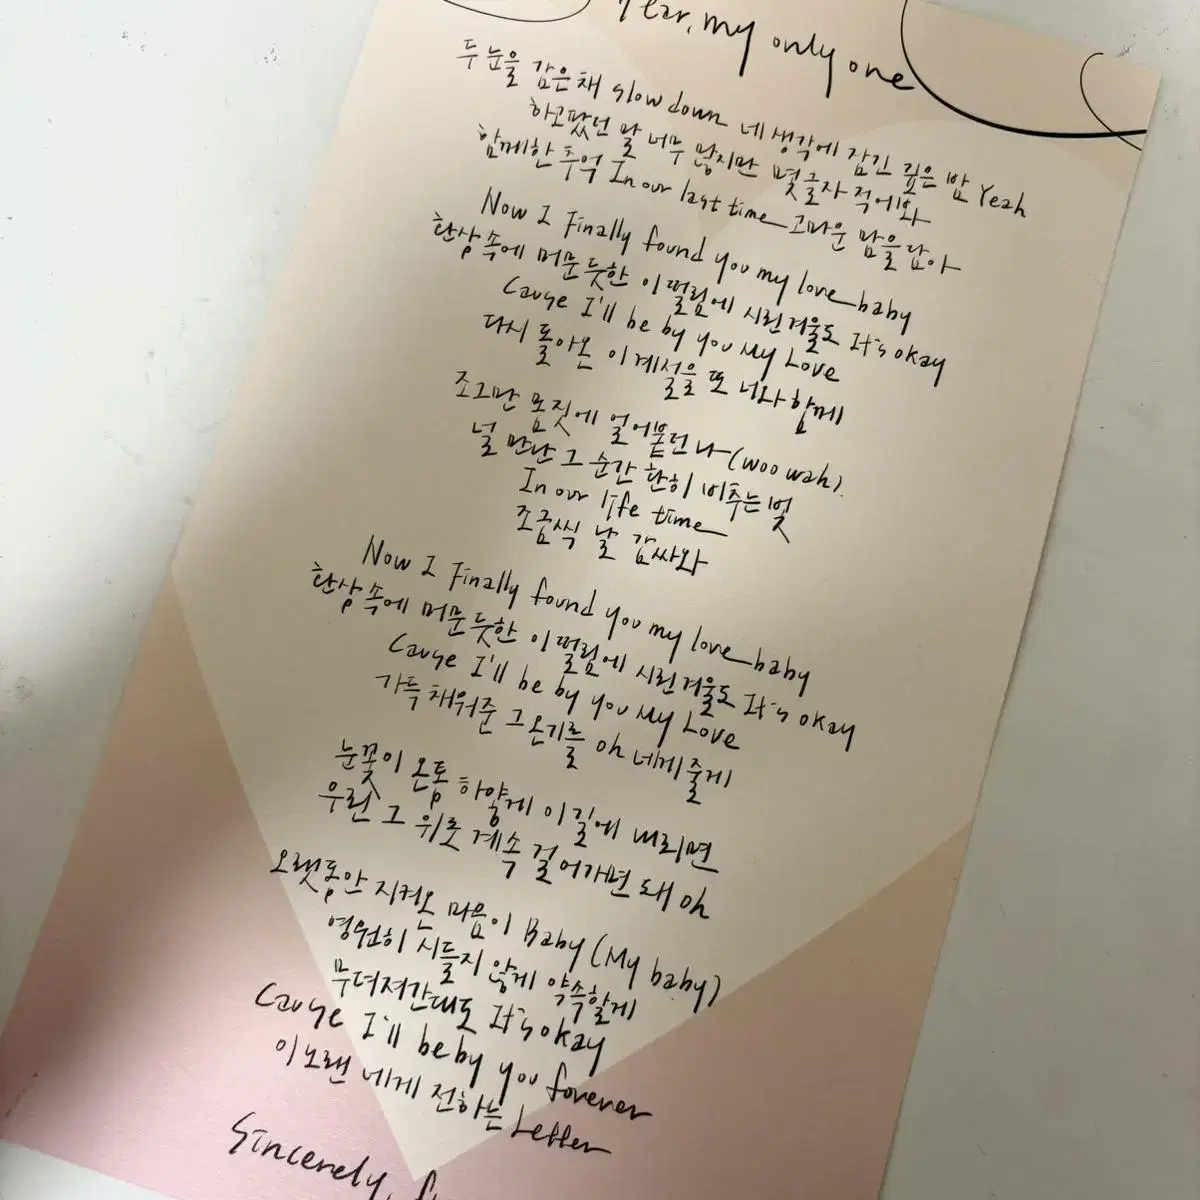 Dear, my only one
두 눈을 감은채 slow down 네 생각에 잠긴 깊은 밤 Yeah
하고팠던 말 너무 많지만 몇글자 적에와
함께한 추억 In our last time 고마운 맘을 담아
Now I Finally found you my love baby
환상속에 머문듯한 이 떨림에 시린겨울도 It's okay
Cause I'll be by you My Love
다시 돌아온 이 계절을 또 너와 함께
조그만 몸짓에 얼어붙던 나 (woo wah)
널 만난 그 순간 환히 비추는 빛
In our life time
조금씩 날 감싸와
Now I Finally found you my love baby
환상속에 머문듯한 이 떨림에 시린겨울도 It's okay
Cause I'll be by you My Love
가득 채워준 그 온기를 oh 네게 줄게
눈꽃이 온통 하얗게 이 길에 내리면
우린 그 위로 계속 걸어가면 돼 oh
오랫동안 지켜온 마음이 Baby (My baby)
영원히 시들지 않게 약속할게
무뎌져간대도 It's okay
Cause I'll be by you forever
이 노랜 네게 전하는 Letter
Sincerely,